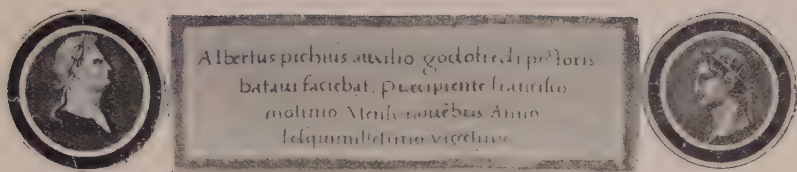 Albertus pichius auxilio godofredi pictoris
bataui faciebat, precipiente francisco
molinio Mense nouẽbris Anno
sesquimillesimo vigesimo